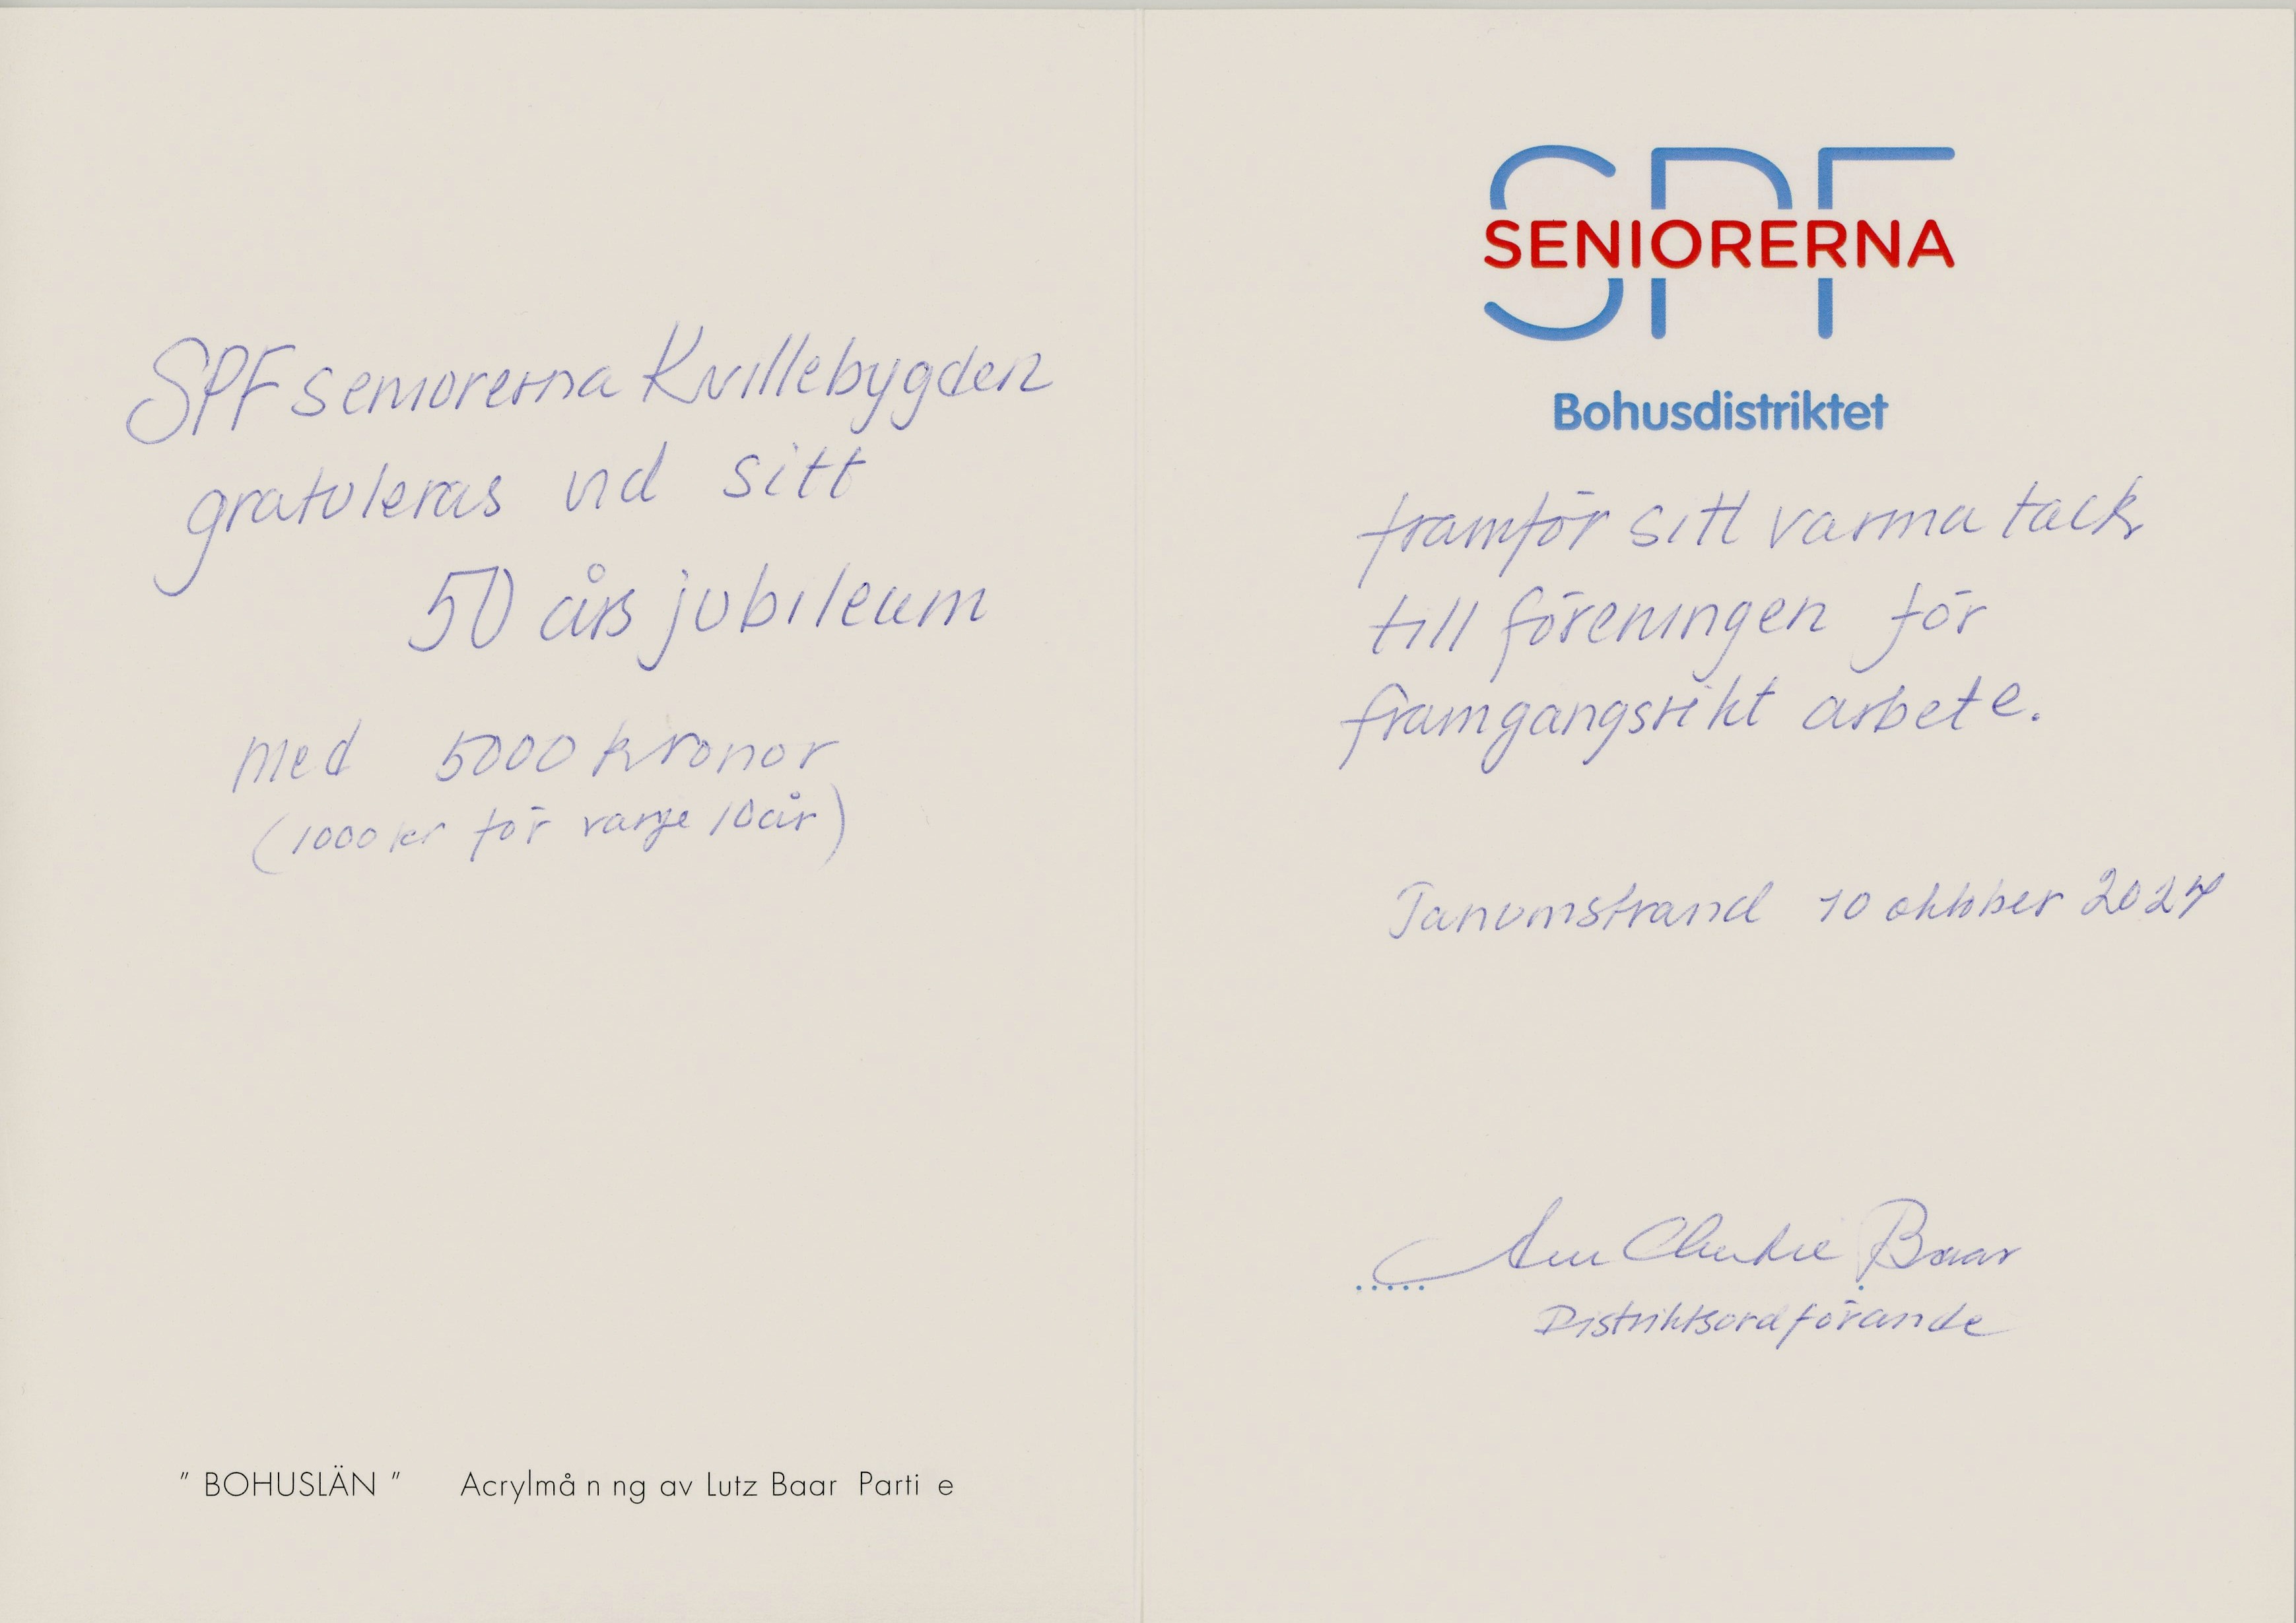 SPF seniorerna Kvillebygden
gratuleras vid sitt
50 års jubileum
med 5000 kronor
(1000 kr för varje 10 år)
" BOHUSLÄN " Acrylmå n ng av Lutz Baar Parti e
SPF
SENIORERNA
Bohusdistriktet
framför sitt varma tack
till föreningen för
framgangsrikt arbete.
Tanumstrand 10 oktober 2024
Ann Baar
Distriktsordförande